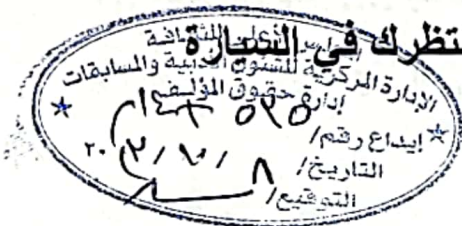 تنتظرك في السيارة
المجلس الأعلى للثقافة
الإدارة المركزية للشئون الأدبية والمسابقات
إدارة حقوق المؤلف
إيداع رقم/
التاريخ/ ٨ / ١٠ /
التوقيع/